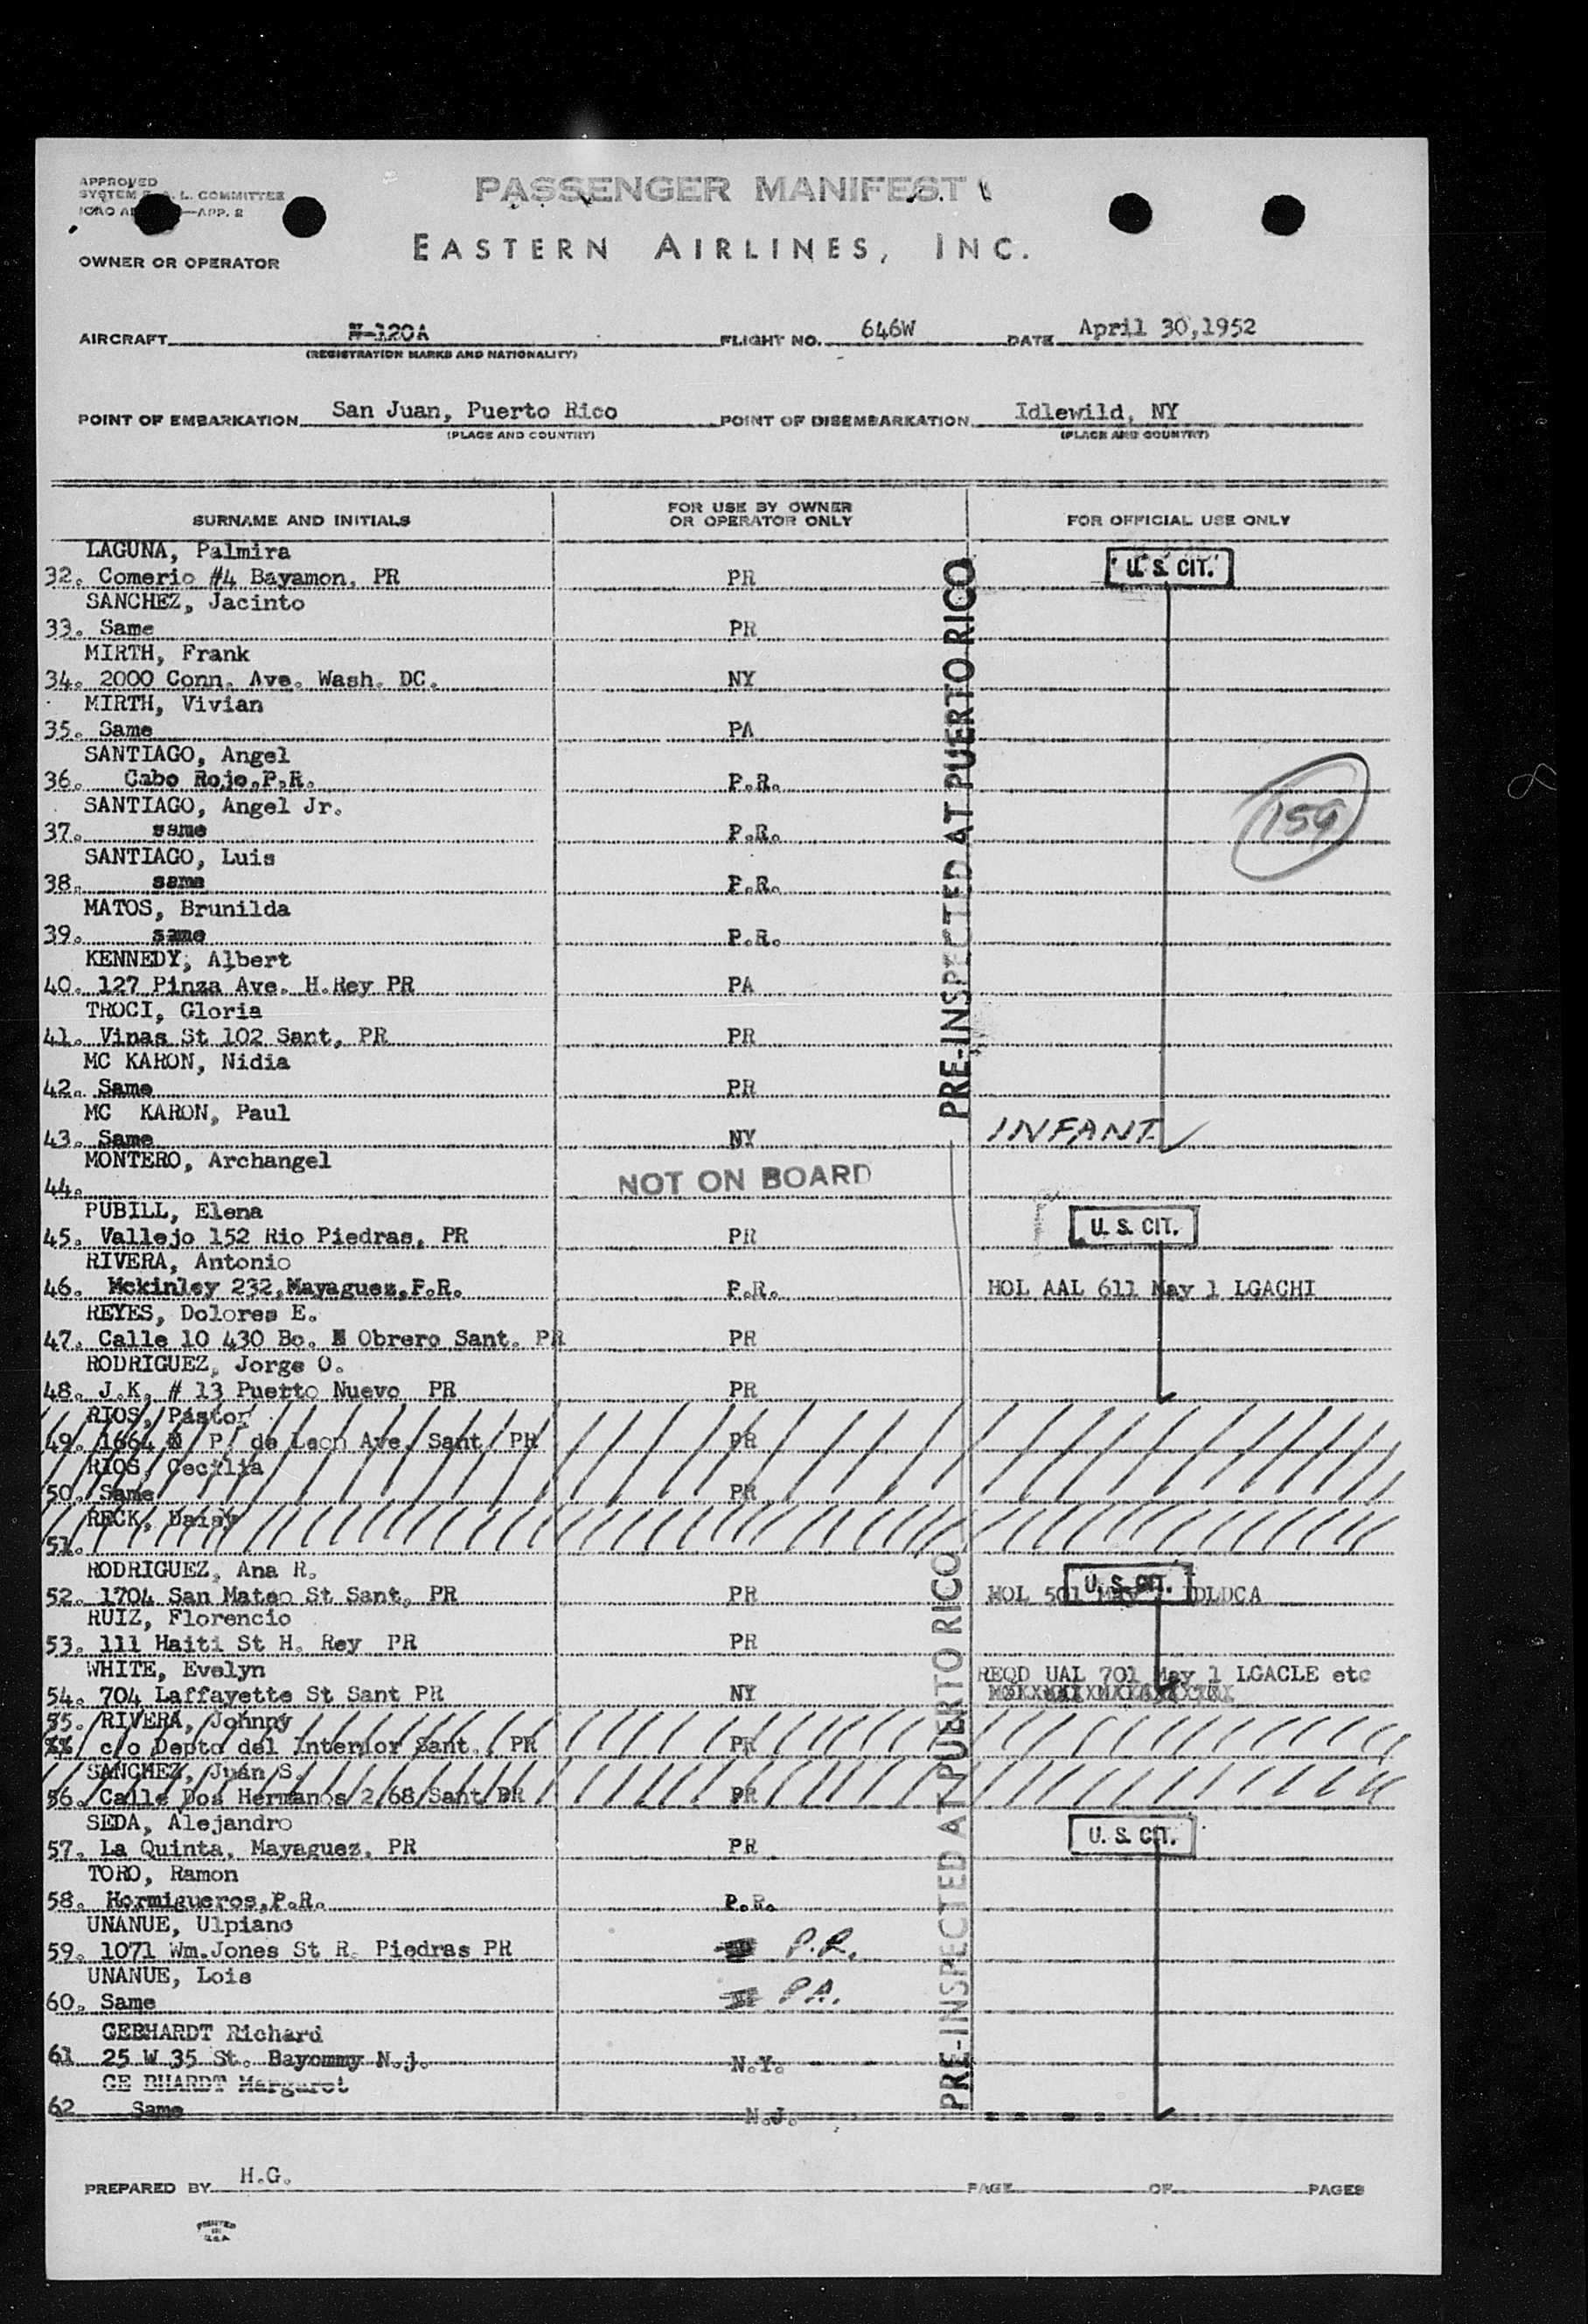 APPROVED
SYSTEM L. COMMITTEE
ICAO —APP. 2
PASSENGER MANIFEST
EASTERN AIRLINES, INC.
OWNER OR OPERATOR
AIRCRAFT N-120A FLIGHT NO. 646W DATE April 30,1952
(REGISTRATION MARKS AND NATIONALITY)
POINT OF EMBARKATION San Juan, Puerto Rico POINT OF DISEMBARKATION Idlewild, NY
(PLACE AND COUNTRY) (PLACE AND COUNTRY)
SURNAME AND INITIALS FOR USE BY OWNER OR OPERATOR ONLY FOR OFFICIAL USE ONLY
LAGUNA, Palmira
32. Comerio #4 Bayamon, PR PR U. S. CIT.
SANCHEZ, Jacinto
33. Same PR
MIRTH, Frank
34. 2000 Conn. Ave. Wash. DC. NY
MIRTH, Vivian
35. Same PA
SANTIAGO, Angel
36. Cabo Rojo,P.R. P.R.
SANTIAGO, Angel Jr.
37. same P.R. 159
SANTIAGO, Luis
38. same P.R.
MATOS, Brunilda
39. same P.R.
KENNEDY, Albert
40. 127 Pinza Ave. H.Rey PR PA
TROCI, Gloria
41. Vinas St 102 Sant, PR PR
MC KARON, Nidia
42. Same PR
PRE-INSPECTED AT PUERTO RICO
MC KARON, Paul
43. Same NY INFANT
MONTERO, Archangel
44. NOT ON BOARD
PUBILL, Elena
45. Vallejo 152 Rio Piedras, PR PR U. S. CIT.
RIVERA, Antonio
46. Mckinley 232,Mayaguez,P.R. P.R. HOL AAL 611 May 1 LGACHI
REYES, Dolores E.
47. Calle 10 430 Bo. Obrero Sant. PR PR
RODRIGUEZ, Jorge O.
48. J.K. # 13 Puetto Nuevo PR PR
RIOS, Pastor
49. 1664 P. de Leon Ave. Sant PR PR
RIOS, Cecilia
50. Same PR
RECK, Daisy
51.
RODRIGUEZ, Ana R.
52. 1704 San Mateo St Sant, PR PR HOL 501 May IDLDCA U. S. CIT.
RUIZ, Florencio
53. 111 Haiti St H. Rey PR PR
WHITE, Evelyn REQD UAL 701 May 1 LGACLE etc
54. 704 Laffayette St Sant PR NY
55. RIVERA, Johnny
c/o Depto del Interior Sant. PR PR
SANCHEZ, Juan S.
56. Calle Dos Hermanos 2 68 Sant PR PR
SEDA, Alejandro
57. La Quinta, Mayaguez, PR PR U. S. CIT.
TORO, Ramon
58. Hormigueros,P.R. P.R.
UNANUE, Ulpiano
59. 1071 Wm.Jones St R. Piedras PR P.R.
UNANUE, Lois
60. Same PA.
GEBHARDT Richard
61 25 W 35 St. Bayommy N.j. N.Y.
GE BHARDT Margaret
62 Same N.J.
PRE-INSPECTED AT PUERTO RICO
PREPARED BY H.G. PAGE OF PAGES
PRINTED
IN
U.S.A.